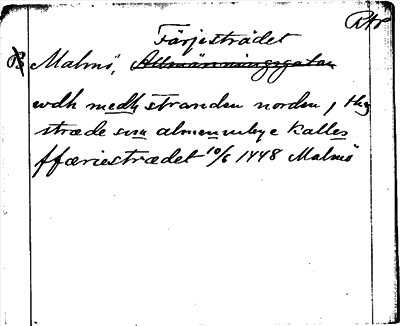 Rtr
Färjestrædet
B Malmö, Allmänningsgatan
wdh medh stranden norden, thz
stræde som almennelige kalles
ffæriestrædet 10/6 1448 Malmö